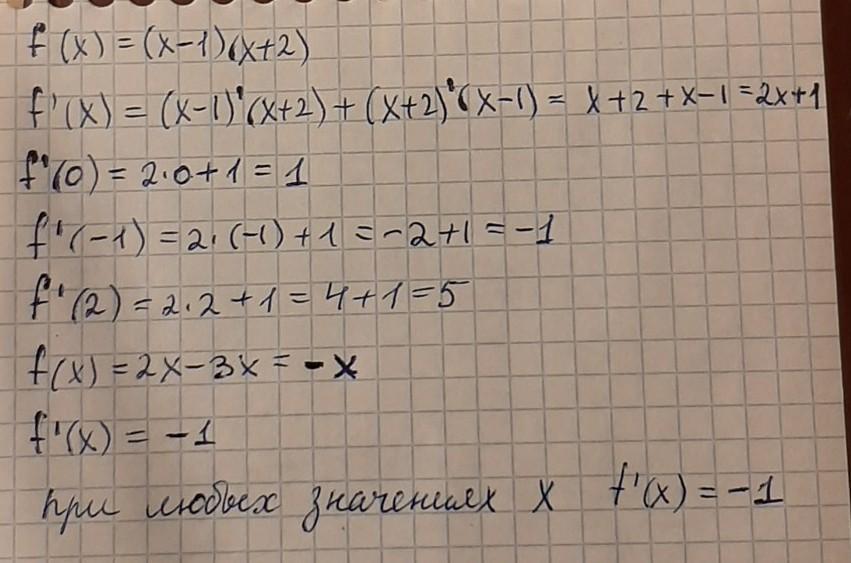 f(x) = (x-1)(x+2)
f'(x) = (x-1)'(x+2) + (x+2)'(x-1) = x+2+x-1 = 2x+1
f'(0) = 2·0+1 = 1
f'(-1) = 2·(-1)+1 = -2+1 = -1
f'(2) = 2·2+1 = 4+1 = 5
f(x) = 2x-3x = -x
f'(x) = -1
при любых значениях x f'(x) = -1